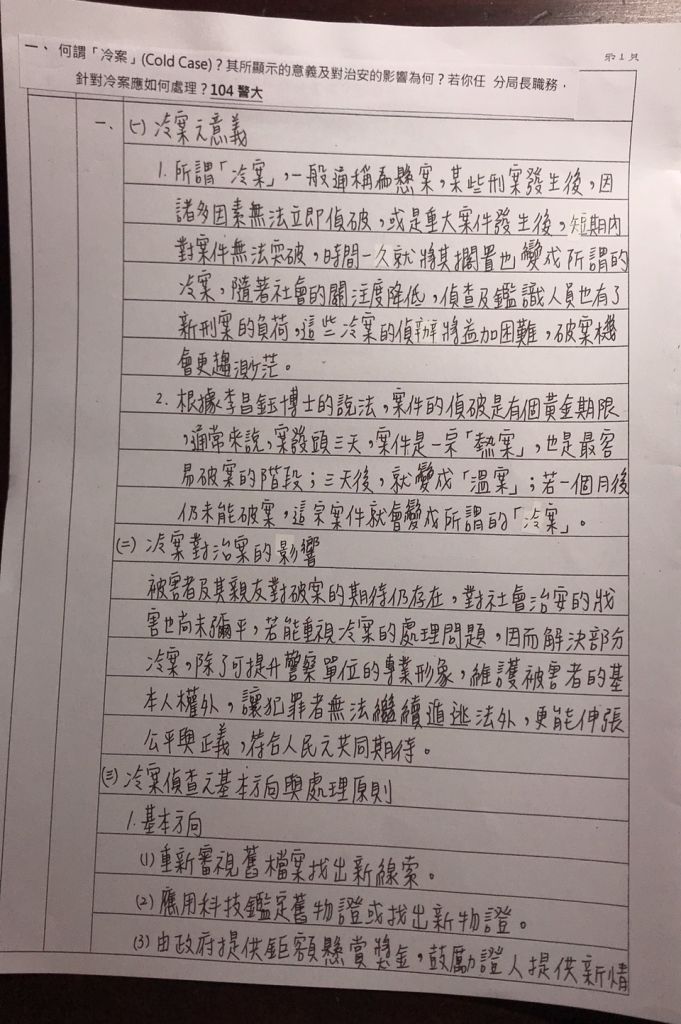 第1頁
一、 何謂「冷案」(Cold Case)？其所顯示的意義及對治安的影響為何？若你任 分局長職務，
針對冷案應如何處理？104 警大
一、 (一) 冷案之意義
1. 所謂「冷案」，一般通稱為懸案，某些刑案發生後，因
諸多因素無法立即偵破，或是重大案件發生後，短期內
對案件無法突破，時間一久就將其擱置也變成所謂的
冷案，隨著社會的關注度降低，偵查及鑑識人員也有了
新刑案的負荷，這些冷案的偵辦將益加困難，破案機
會更趨渺茫。
2. 根據李昌鈺博士的說法，案件的偵破是有個黃金期限
，通常來說，案發頭三天，案件是一宗「熱案」，也是最容
易破案的階段；三天後，就變成「溫案」；若一個月後
仍未能破案，這宗案件就會變成所謂的「冷案」。
(二) 冷案對治案的影響
被害者及其親友對破案的期待仍存在，對社會治安的戕
害也尚未彌平，若能重視冷案的處理問題，因而解決部分
冷案，除了可提升警察單位的專業形象，維護被害者的基
本人權外，讓犯罪者無法繼續遁逃法外，更能伸張
公平與正義，符合人民之共同期待。
(三) 冷案偵查之基本方向與處理原則
1. 基本方向
(1) 重新審視舊檔案找出新線索。
(2) 應用科技鑑定舊物證或找出新物證。
(3) 由政府提供鉅額懸賞獎金，鼓勵證人提供新情